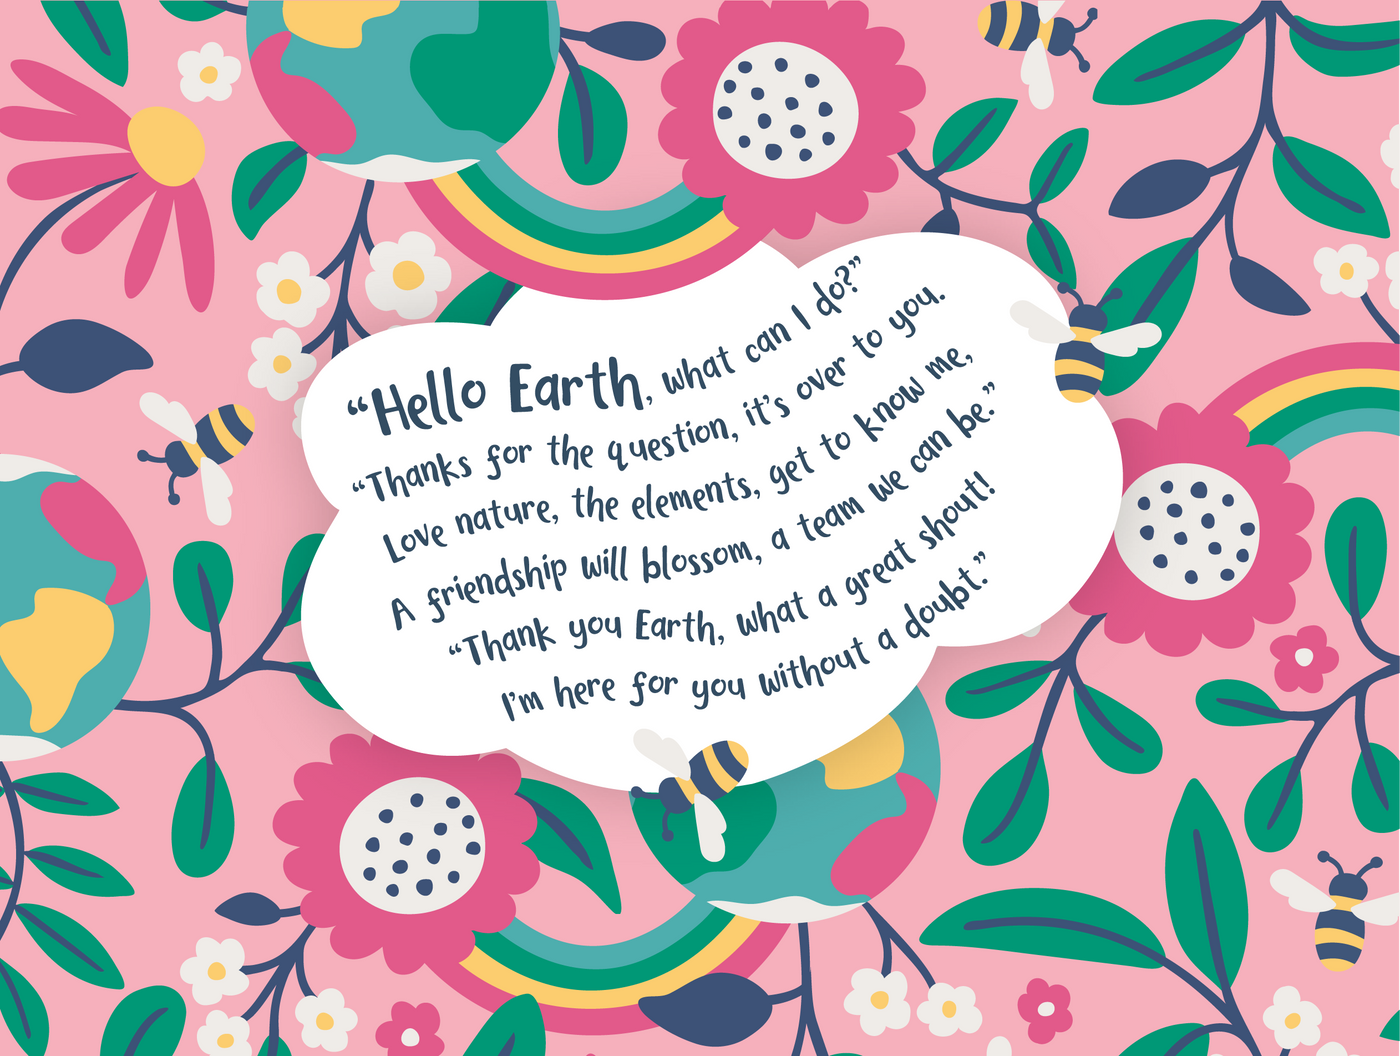 “Hello Earth, what can I do?”
“Thanks for the question, it's over to you.
Love nature, the elements, get to know me,
A friendship will blossom, a team we can be.”
“Thank you Earth, what a great shout!
I'm here for you without a doubt.”